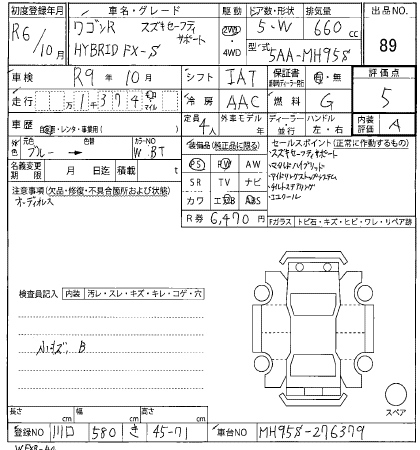 初度登録年月 車名・グレード 駆動 ドア数・形状 排気量 出品NO.
R6/10月 ワゴンR スズキセーフティサポート 2WD 5・W 660cc 89
HYBRID FX-S 4WD 型式 5AA-MH95S
車検 R9年10月 シフト IAT 保証書 有・無 評価点
走行 万1千374 km マイル 冷房 AAC 燃料 G 5
車歴 自家用・レンタ・事業用( ) 定員 4人 外車モデル 年 ディーラー 並行 ハンドル 左・右 内装評価 A
外色 元色 ブルー → 色替 カラーNO W BT 装備品(純正品に限る) セールスポイント(正常に作動するもの)
名義変更期限 月 日迄 積載 t PS PW AW ・スズキセーフティサポート
注意事項(欠品・修復・不具合箇所および状態) SR TV ナビ ・マイルドハイブリッド
オーディオレス カワ エアB ABS ・アイドリングストップシステム
・チルトステアリング
・エネクール
R券 6,470円 Fガラス トビ石・キズ・ヒビ・ワレ・リペア跡
検査員記入 内装 汚レ・スレ・キズ・キレ・コゲ・穴
B
スペア
長さ cm 幅 cm 高さ cm
登録NO 川口 580 き 45-71 車台NO MH95S-276379